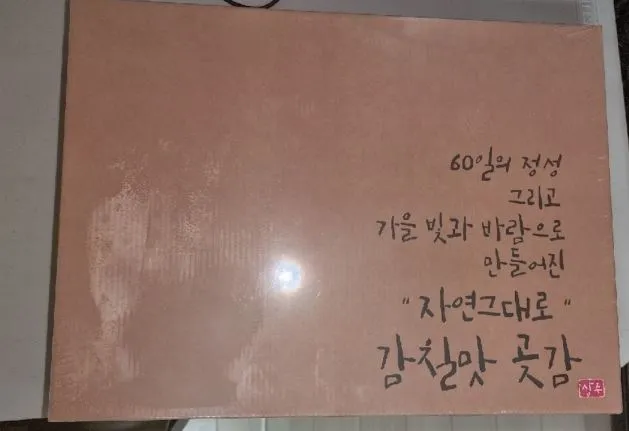 60일의 정성
그리고
가을 빛과 바람으로
만들어진
"자연그대로"
감칠맛 곶감